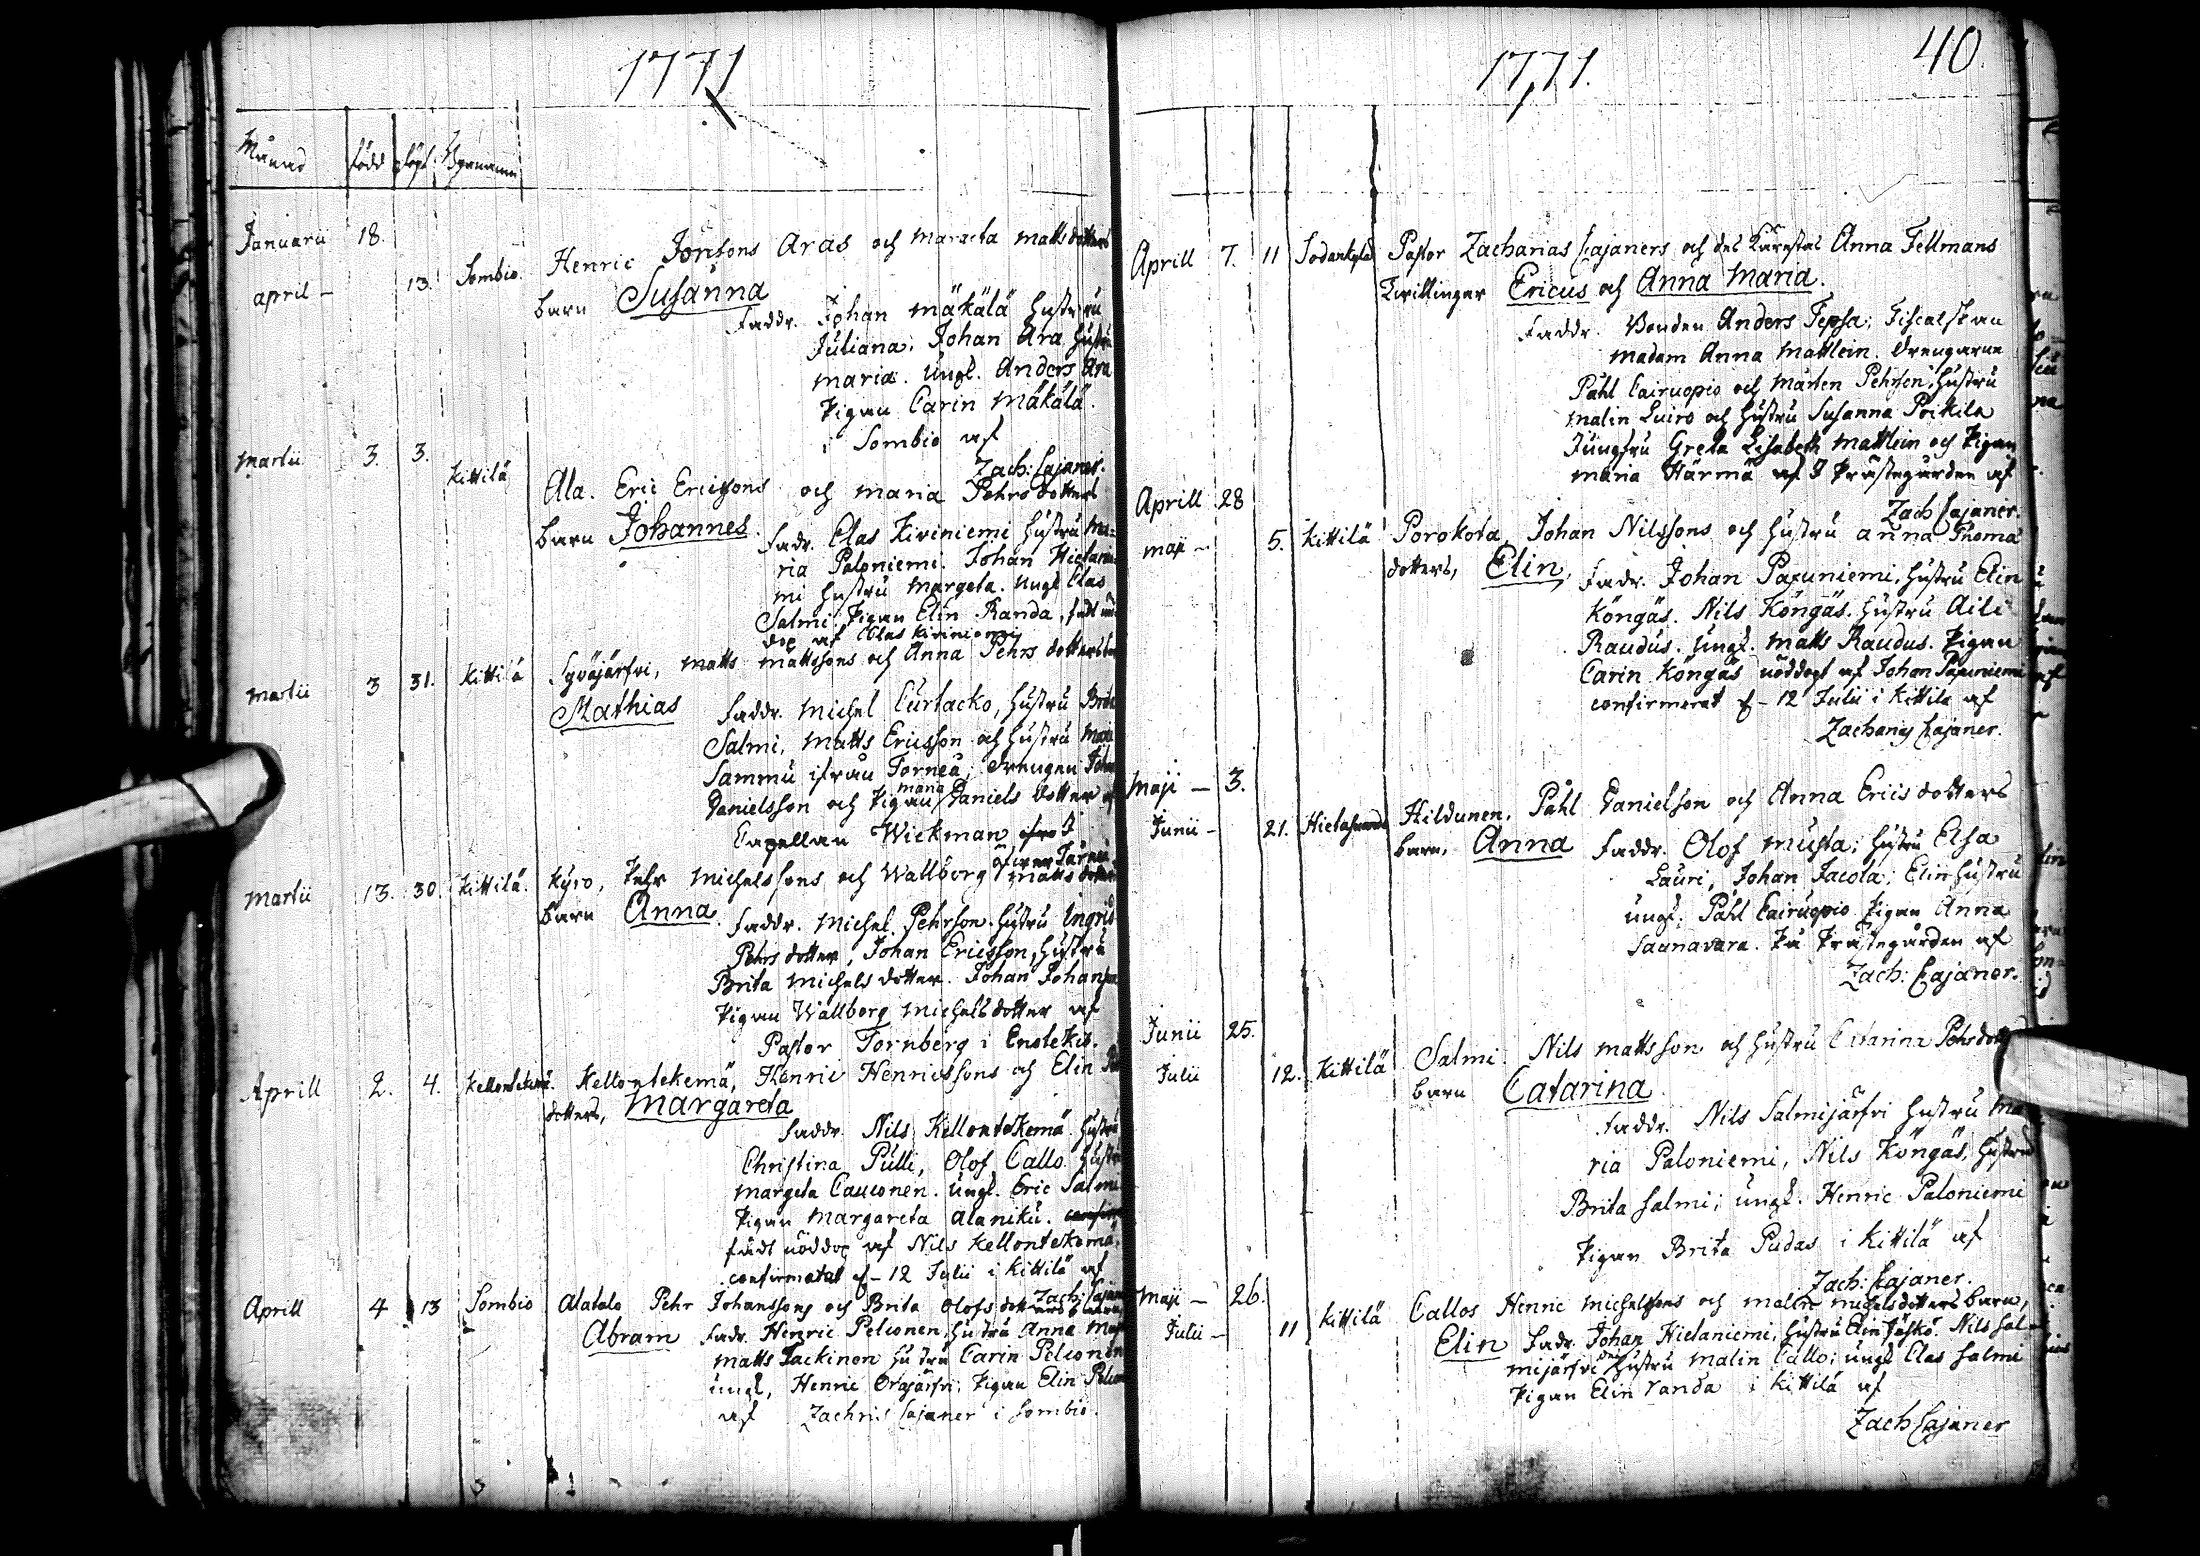 1771
Månad född döpt Bynamn
Januarii 18.
april – 13. Sombio. Henric Jonsons Aras och Mareeta Matts dotters
barn Susanna
faddr. Johan Mäkälä hustru
Juliana; Johan Ara hustru
Maria. ungl. Anders Ara
Pigan Carin Mäkälä.
i Sombio af
Zach: Cajaner.
Martii 3. 3. Kittilä Ala. Eric Ericssons och Maria Pehrs dotters
barn Johannes. fadr. Clas Kiviniemi hustru Ma=
ria Paloniemi. Johan Hietanie
mi hustru Margeta. Ungl Clas
Salmi. Pigan Elin Randa, födt nöd
dop af Clas Kiviniemi
Martii 3 31. Kittilä Syväjärfvi, Matts Mattssons och Anna Pehrs dotters
Mathias faddr. Michel Curtacko, hustru
Salmi, Matts Ericsson och hustru
Sammu ifrån Torneå; Drengen
Danielsson och Pigan Maria Daniels dotter af
Capellan Wickman
Martii 13. 30. Kittilä. Kyro, Pehr Michelssons och Wallborg Matts
barn Anna. faddr. Michel Pehrson. hustru Ingrid
Pehrs dotter, Johan Ericsson, hustru
Brita Michels dotter. Johan
Pigan Wallborg Michels dotter af
Pastor Tornberg i Enotekis.
Aprill 2. 4. Kellontekemä. Kellontekemä, Henric Henricssons och Elin
dotters, Margareta
faddr. Nils Kellontekemä hustru
Christina Pulli, Olof Callo hustru
Margeta Cauconen. ungl. Eric Salmi
Pigan Margareta Alaniku.
födt nöddop af Nils Kellontekemä.
confirmerat d – 12 Julii i Kittilä af
Zach: Cajaner
Aprill 4 13 Sombio Alatalo Pehr Johanssons och Brita Olofs dotters barn
Abram fadr. Henric Pelconen, hustru Anna
Matts Tackinen hustru Carin Pelconen
ungl, Henric Orajärfvi; Pigan Elin
af Zachris Cajaner i Sombio.
40.
1771.
Aprill 7. 11 Sodankylä Pastor Zacharias Cajaners och des Käresta Anna Fellmans
Twillingar Ericus och Anna Maria.
faddr. Bonden Anders Tepsa; Fiscalskan
Madam Anna Mattlein. Drengarne
Påhl Cairuopio och Mårten Pehrson; hustru
Malin Luiro och hustru Susanna Poikila
Jungfru Greta Lisabeth Mattlein och Pigan
Maria Härmä af I Prästegården af
Zach Cajaner.
Aprill 28
Maji – 5. Kittilä Porokota, Johan Nilssons och hustru Anna Thoma
dotters, Elin, fadr. Johan Paxuniemi, hustru Elin
Köngäs. Nils Köngäs. hustru Aili
Raudus. ungl. Matts Raudus. Pigan
Carin Köngäs nöddopt af Johan Paxuniemi
confirmerat d – 12 Julii i Kittila af
Zacharig Cajaner.
Maji – 3.
Junii – 21. Hildunen, Påhl Danielson och Anna Erics dotters
barn, Anna faddr. Olof Musta; hustru Elsa
Lauri, Johan Jacola; Elin hustru
ungl. Påhl Cairuopio Pigan Anna
Saunavara. På Prästegården af
Zach: Cajaner.
Junii 25.
Julii 12. Kittilä Salmi Nils Mattsson och hustru Catarina Pehrsdotters
barn Catarina.
faddr. Nils Salmijärfvi hustru Ma
ria Paloniemi, Nils Köngäs, hustru
Brita Salmi; ungl. Henric Paloniemi
Pigan Brita Pudas i Kittilä af
Zach: Cajaner.
Maji – 26.
Julii – 11 Kittilä Callos Henric Michelssons och Malin Michelsdotters barn,
Elin fadr. Johan Hietaniemi, hustru Elin Jäskö. Nils Sal-
mijärfvi hustru Malin Callo; ungl Clas Salmi
Pigan Elin Randa i Kittilä af
Zach Cajaner